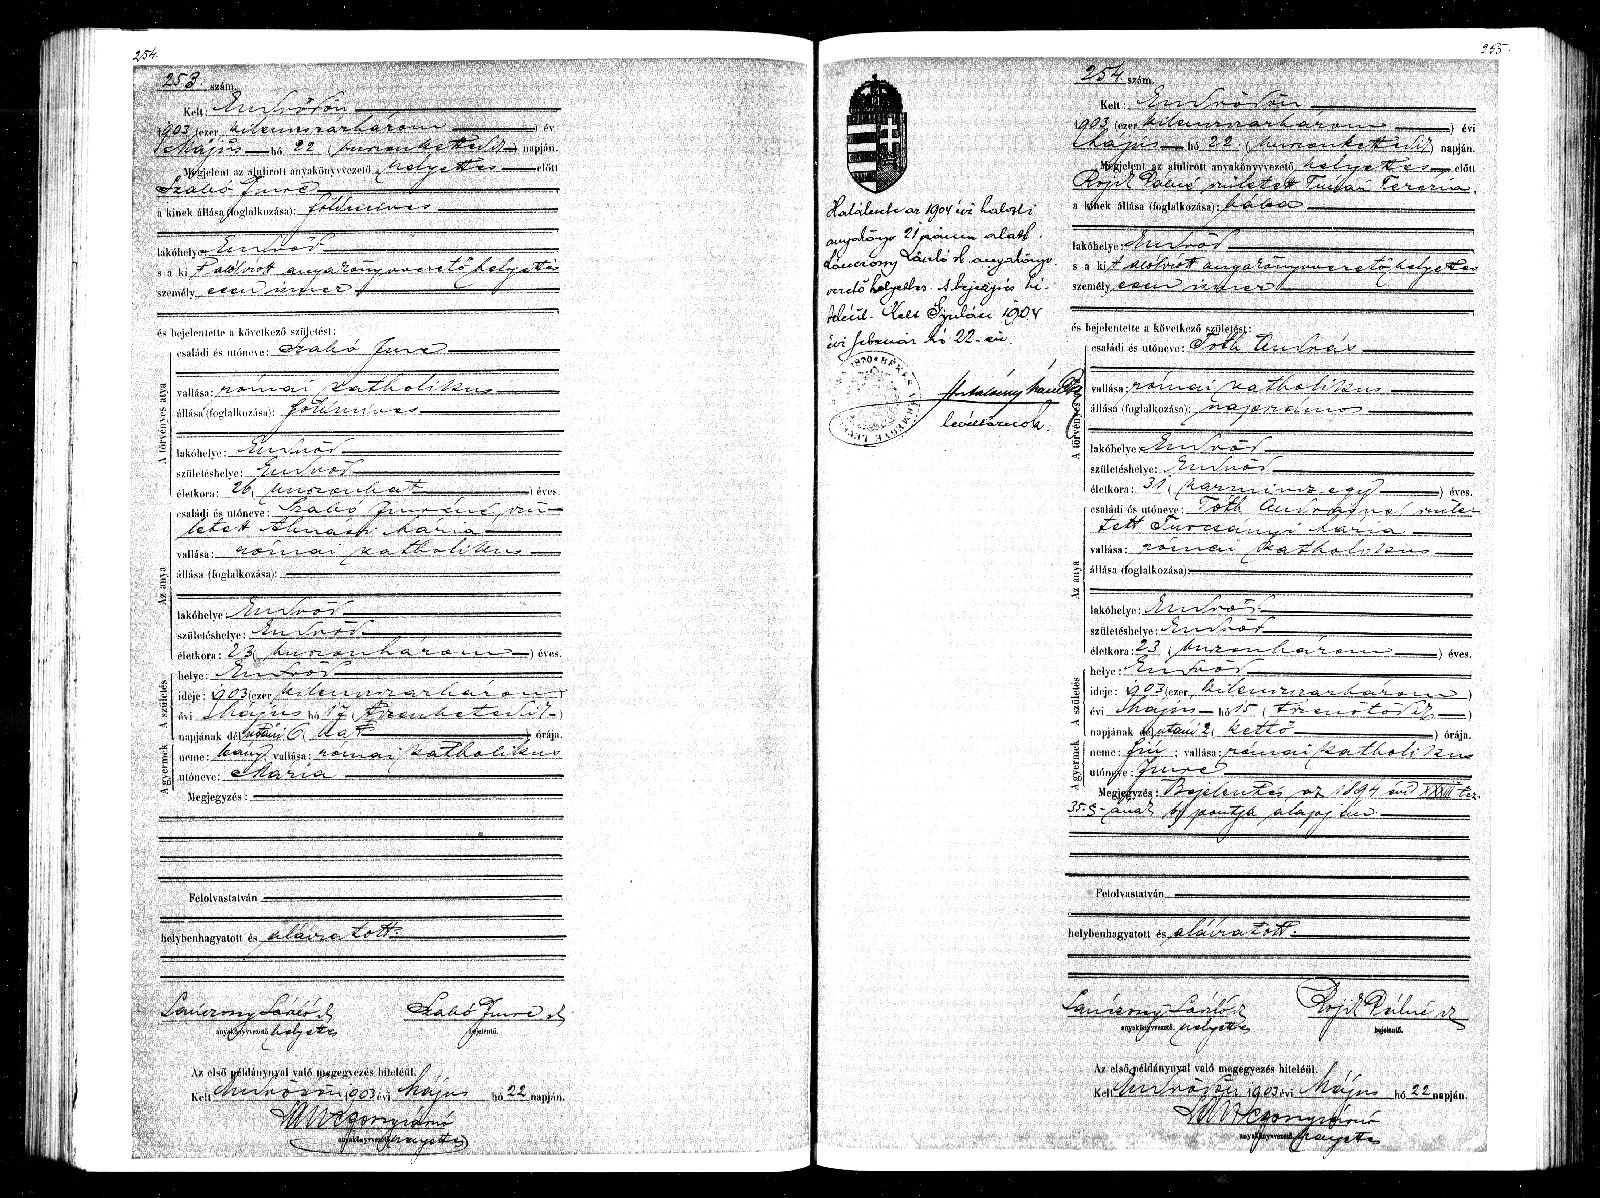 254.
253 szám.
Kelt: Endrődön
1903 (ezer kilenczszázhárom) év
Május hó 22 (huszonkettedik) napján.
Megjelent az alulirott anyakönyvvezető helyettes előtt
Szabó Imre
a kinek állása (foglalkozása): földmives
lakóhelye Endrőd
s a ki t alólirott anyakönyvvezető helyettes
személy esen ismer
és bejelentette a következő születést:
A törvényes atya
családi és utóneve: Szabó Imre
vallása: római katholikus
állása (foglalkozása): földmives
lakóhelye: Endrőd
születéshelye: Endrőd
életkora: 26 (huszonhat) éves.
Az anya
családi és utóneve: Szabó Imréné, szü-
letett Almási Mária
vallása: római katholikus
állása (foglalkozása):
lakóhelye: Endrőd
születéshelye: Endrőd
életkora: 23 (huszonhárom) éves.
A születés
helye: Endrőd
ideje: 1903 (ezer kilenczszázhárom)
évi Május hó 17 (tizenhetedik)
napjának dél utáni 6 hat órája.
A gyermek
neme: leány vallása: római katholikus
utóneve: Mária
Megjegyzés:
Felolvastatván
helybenhagyatott és aláiratott.
Lánczony László k Szabó Imre k
anyakönyvvezető helyettes bejelentő.
Az első példánynyal való megegyezés hiteléül.
Kelt Endrődön 1903 évi Május hó 22 napján.
anyakönyvvezető helyettes
255.
Halálesete az 1904 évi halotti
anyakönyv 21 száma alatt.
Lánczony László h. anyakönyv-
vezető helyettes. A bejegyzés hi-
teléül. Kelt Gyulán 1904
évi február hó 22-én.
BÉKÉS VÁRMEGYE LEV
levéltárnok.
254 szám.
Kelt: Endrődön
1903 (ezer kilenczszázhárom) évi
Május hó 22 (huszonkettedik) napján.
Megjelent az alulirott anyakönyvvezető helyettes előtt
Rojik Pálné született Timár Terézia
a kinek állása (foglalkozása): bába
lakóhelye Endrőd
s a ki t alólirott anyakönyvvezető helyettes
személy esen ismer
és bejelentette a következő születést:
A törvényes atya
családi és utóneve: Tóth András
vallása: római katholikus
állása (foglalkozása): napszámos
lakóhelye: Endrőd
születéshelye: Endrőd
életkora: 31 (harminczegy) éves.
Az anya
családi és utóneve: Tóth Andrásné szüle-
tett Turcsányi Mária
vallása: római katholikus
állása (foglalkozása):
lakóhelye: Endrőd
születéshelye: Endrőd
életkora: 23 (huszonhárom) éves.
A születés
helye: Endrőd
ideje: 1903 (ezer kilenczszázhárom)
évi Május hó 15 (tizenötödik)
napjának dél utáni 2 kettő órája.
A gyermek
neme: fiú; vallása: római katholikus
utóneve: Imre
Megjegyzés: Bejelentés az 1894 évi XXXIII t.cz.
35 § ának b) pontja alapján
Felolvastatván
helybenhagyatott és aláiratott.
Lánczony László k Rojik Pálné k
anyakönyvvezető helyettes bejelentő.
Az első példánynyal való megegyezés hiteléül.
Kelt Endrődön 1903 évi Május hó 22 napján.
anyakönyvvezető helyettes